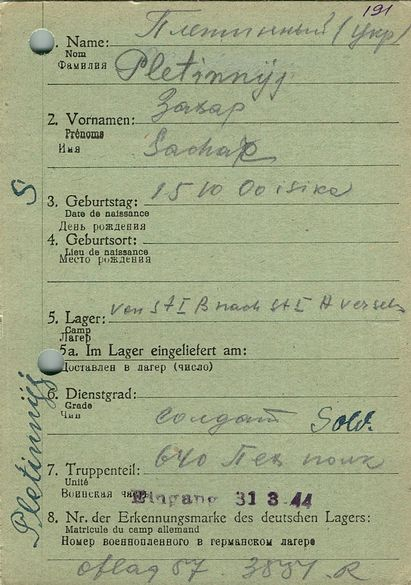 191
Плетинный (укр)
1. Name:
Nom
Фамилия
Pletinnyj
Захар
2. Vornamen:
Prénoms
Имя
Sachar
S
3. Geburtstag: 1510
Date de naissance
День рождения
4. Geburtsort:
Lieu de naissance
Место рождения
5. Lager: von St I B nach St I A versetz
Camp
Лагер
5a. Im Lager eingeliefert am:
Доставлен в лагер (число)
6. Dienstgrad:
Grade
Чин
солдат Sold.
640 Пех полк
7. Truppenteil:
Unité
Воинская часть
Eingang 31 3 44
8. Nr. der Erkennungsmarke des deutschen Lagers:
Matricule du camp allemand
Номер военнопленного в германском лагере
oflag 57 R
Pletinnyj